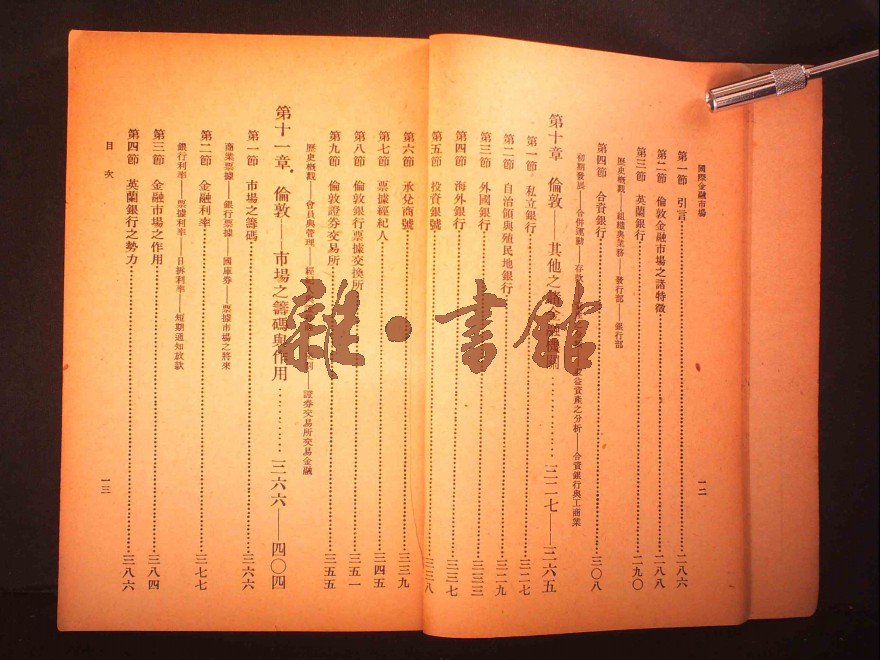 國際金融市場
一二
第一節 引言……二八六
第二節 倫敦金融市場之諸特徵……二八八
第三節 英蘭銀行……二九〇
歷史概觀——組織與業務——發行部——銀行部
第四節 合資銀行……三〇八
初期發展——合併運動——存款 益資產之分析——合資銀行與工商業
第十章 倫敦 其他之諸金融機關……三二七——三六五
第一節 私立銀行……三二七
第二節 自治領與殖民地銀行……三二九
第三節 外國銀行……三三三
第四節 海外銀行……三三七
第五節 投資銀號……三三八
第六節 承兌商號……三三九
第七節 票據經紀人……三四五
第八節 倫敦銀行票據交換所……三五一
第九節 倫敦證券交易所……三五五
歷史概觀——會員與管理——經 ——證券交易所交易金融
第十一章 倫敦——市場之籌碼與作用……三六六——四〇四
第一節 市場之籌碼……三六六
商業票據——銀行票據 國庫券——票據市場之將來
第二節 金融利率……三七七
銀行利率——票據利率——日拆利率——短期通知放款
第三節 金融市場之作用……三八四
第四節 英蘭銀行之勢力……三八六
目次
一三
雜·書館